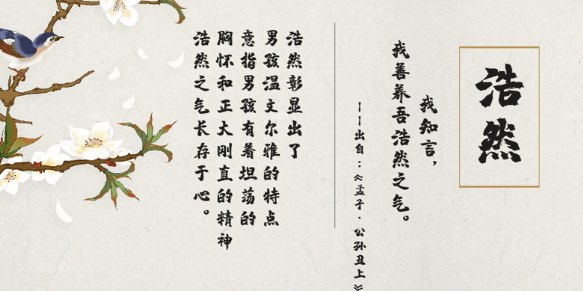 浩然
我知言，
我善养吾浩然之气。
——出自：《孟子·公孙丑上》
浩然彰显出了
男孩温文尔雅的特点
意指男孩有着坦荡的
胸怀和正大刚直的精神
浩然之气长存于心。